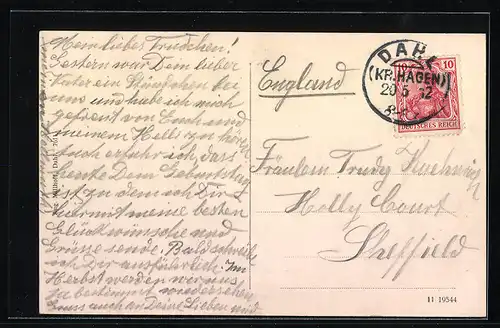 Mein liebes Trudchen!
Gestern war Dein lieber
Vater ein Stündchen bei
uns und habe ich mich
gefreut von Euch und
meinem Hells zu hören
Auch erfuhr ich, dass
heute Dein Geburtstag
ist zu dem ich Dir
hiermit meine besten
Glückwünsche und
Grüsse sende. Bald schreibe
ich Dir ausführlich. Im
Herbst werden wir uns
bestimmt wiedersehen
uns auch an Deine Lieben und
England
DAHL
(KR. HAGEN)
20 5 12
10
DEUTSCHES REICH
Fräulein Trudy
Holly Court
Sheffield
11 19544